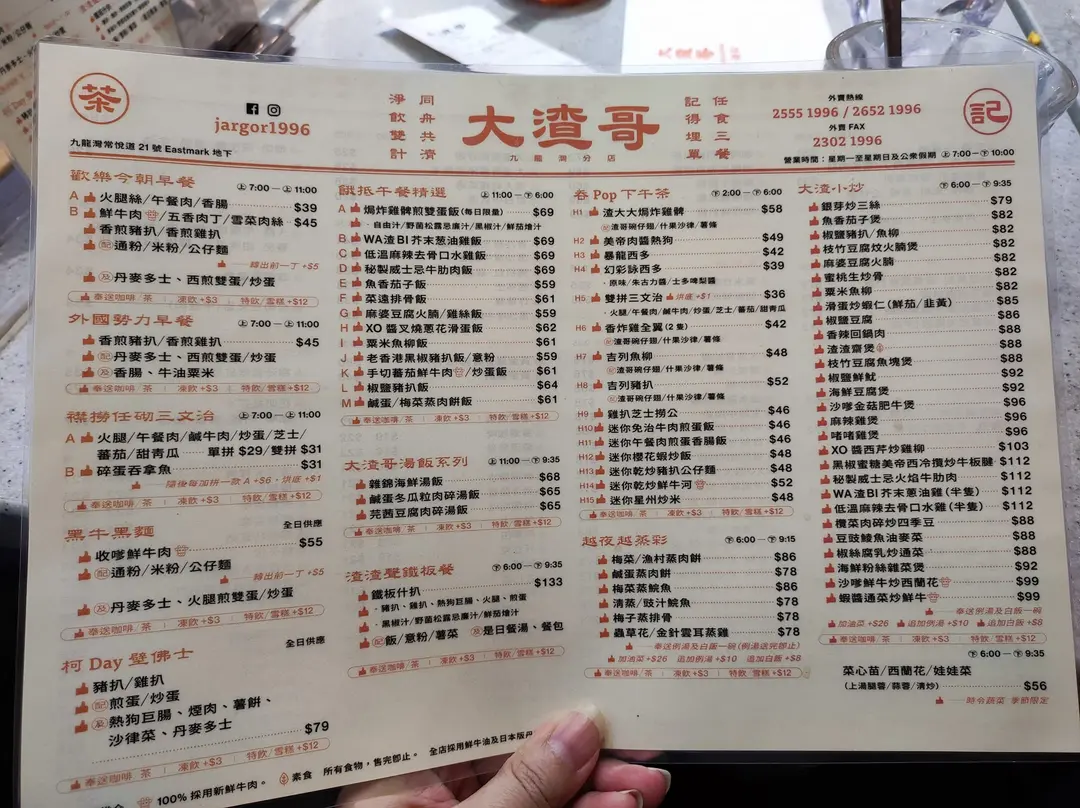 茶
jargor1996
九龍灣常悅道 21 號 Eastmark 地下
淨飲雙計
同舟共濟
大渣哥
九龍灣分店
記得埋單
任食三餐
外賣熱線
2555 1996 / 2652 1996
外賣 FAX
2302 1996
記
營業時間：星期一至星期日及公眾假期 上 7:00 -下 10:00
歡樂今朝早餐 上 7:00 —上 11:00
A 火腿絲/午餐肉/香腸 $39
B 鮮牛肉/五香肉丁/雪菜肉絲 $45
香煎豬扒/香煎雞扒
配 通粉/米粉/公仔麵
轉出前一丁 +$5
及 丹麥多士、西煎雙蛋/炒蛋
奉送咖啡/茶 | 凍飲+$3 | 特飲/雪糕+$12
外國勢力早餐 上 7:00 —上 11:00
香煎豬扒/香煎雞扒 $45
配 丹麥多士、西煎雙蛋/炒蛋
及 香腸、牛油粟米
奉送咖啡/茶 | 凍飲+$3 | 特飲/雪糕+$12
襟撈任砌三文治 上 7:00 —上 11:00
A 火腿/午餐肉/鹹牛肉/炒蛋/芝士/
蕃茄/甜青瓜 單拼 $29/雙拼 $31
B 碎蛋吞拿魚 $31
隨後每加拼一款 A +$6，烘底 +$1
奉送咖啡/茶 | 凍飲+$3 | 特飲/雪糕+$12
黑牛黑麵 全日供應
收嗲鮮牛肉 $55
配 通粉/米粉/公仔麵
轉出前一丁 +$5
及 丹麥多士、火腿煎雙蛋/炒蛋
奉送咖啡/茶 | 凍飲+$3 | 特飲/雪糕+$12
柯 Day 壁佛士 全日供應
豬扒/雞扒
配 煎蛋/炒蛋
及 熱狗巨腸、煙肉、薯餅、
沙律菜、丹麥多士 $79
奉送咖啡/茶 | 凍飲+$3 | 特飲/雪糕+$12
餓抵午餐精選 上 11:00 —下 6:00
A 焗炸雞髀煎雙蛋飯(每日限量) $69
· 自由汁/野菌松露忌廉汁/黑椒汁/鮮茄燴汁
B WA渣BI芥末葱油雞飯 $69
C 低溫麻辣去骨口水雞飯 $69
D 秘製威士忌牛肋肉飯 $69
E 魚香茄子飯 $59
F 菜遠排骨飯 $61
G 麻婆豆腐火腩/雞絲飯 $59
H XO 醬叉燒蔥花滑蛋飯 $62
I 粟米魚柳飯 $61
J 老香港黑椒豬扒飯/意粉 $59
K 手切蕃茄鮮牛肉/炒蛋飯 $61
L 椒鹽豬扒飯 $64
M 鹹蛋/梅菜蒸肉餅飯 $61
奉送咖啡/茶 | 凍飲+$3 | 特飲/雪糕+$12
大渣哥湯飯系列 上 11:00 —下 9:35
雜錦海鮮湯飯 $68
鹹蛋冬瓜粒肉碎湯飯 $65
芫茜豆腐肉碎湯飯 $65
奉送咖啡/茶 | 凍飲+$3 | 特飲/雪糕+$12
渣渣聲鐵板餐 下 6:00 —下 9:35
鐵板什扒 $133
· 豬扒、雞扒、熱狗巨腸、火腿、煎蛋
· 黑椒汁/野菌松露忌廉汁/鮮茄燴汁
配 飯/意粉/薯菜 及 是日餐湯、餐包
奉送咖啡/茶 | 凍飲+$3 | 特飲/雪糕+$12
吞 Pop 下午茶 下 2:00 —下 6:00
H1 渣大大焗炸雞髀 $58
配 渣哥碗仔翅/什果沙律/薯條
H2 美帝肉醬熱狗 $49
H3 暴龍西多 $42
H4 幻彩詠西多 $39
· 原味/朱古力醬/士多啤梨醬
H5 雙拼三文治 烘底 +$1 $36
· 火腿/午餐肉/鹹牛肉/炒蛋/芝士/蕃茄/甜青瓜
H6 香炸雞全翼(2 隻) $42
配 渣哥碗仔翅/什果沙律/薯條
H7 吉列魚柳 $48
配 渣哥碗仔翅/什果沙律/薯條
H8 吉列豬扒 $52
配 渣哥碗仔翅/什果沙律/薯條
H9 雞扒芝士撈公 $46
H10 迷你免治牛肉煎蛋飯 $46
H11 迷你午餐肉煎蛋香腸飯 $46
H12 迷你櫻花蝦炒飯 $48
H13 迷你乾炒豬扒公仔麵 $48
H14 迷你乾炒鮮牛河 $52
H15 迷你星州炒米 $48
奉送咖啡/茶 | 凍飲+$3 | 特飲/雪糕+$12
越夜越蒸彩 下 6:00 —下 9:15
梅菜/漁村蒸肉餅 $86
鹹蛋蒸肉餅 $78
梅菜蒸鯇魚 $86
清蒸/豉汁鯇魚 $78
梅子蒸排骨 $78
蟲草花/金針雲耳蒸雞 $78
奉送例湯及白飯一碗(例湯送完即止)
加油菜+$26 追加例湯+$10 追加白飯+$8
奉送咖啡/茶 | 凍飲+$3 | 特飲/雪糕+$12
大渣小炒 下 6:00 —下 9:35
銀芽炒三絲 $79
魚香茄子煲 $82
椒鹽豬扒/魚柳 $82
枝竹豆腐炆火腩煲 $82
麻婆豆腐火腩 $82
蜜桃生炒骨 $82
粟米魚柳 $82
滑蛋炒蝦仁(鮮茄/韭黃) $85
椒鹽豆腐 $86
香辣回鍋肉 $88
渣渣齋煲 $88
枝竹豆腐魚塊煲 $88
椒鹽鮮魷 $92
海鮮豆腐煲 $92
沙嗲金菇肥牛煲 $96
麻辣雞煲 $96
啫啫雞煲 $96
XO 醬西芹炒雞柳 $103
黑椒蜜糖美帝西冷攬炒牛板腱 $112
秘製威士忌火焰牛肋肉 $112
WA渣BI芥末蔥油雞(半隻) $112
低溫麻辣去骨口水雞(半隻) $112
欖菜肉碎炒四季豆 $88
豆豉鯪魚油麥菜 $88
椒絲腐乳炒通菜 $88
海鮮粉絲雜菜煲 $92
沙嗲鮮牛炒西蘭花 $99
蝦醬通菜炒鮮牛 $99
奉送例湯及白飯一碗
加油菜+$26 追加例湯+$10 追加白飯+$8
奉送咖啡/茶 | 凍飲+$3 | 特飲/雪糕+$12
下 6:00 —下 9:35
菜心苗/西蘭花/娃娃菜
(上湯腿蓉/蒜蓉/清炒) $56
時令蔬菜 季節限定
100% 採用新鮮牛肉。 素食 所有食物，售完即止。 全店採用鮮牛油及日本版丹